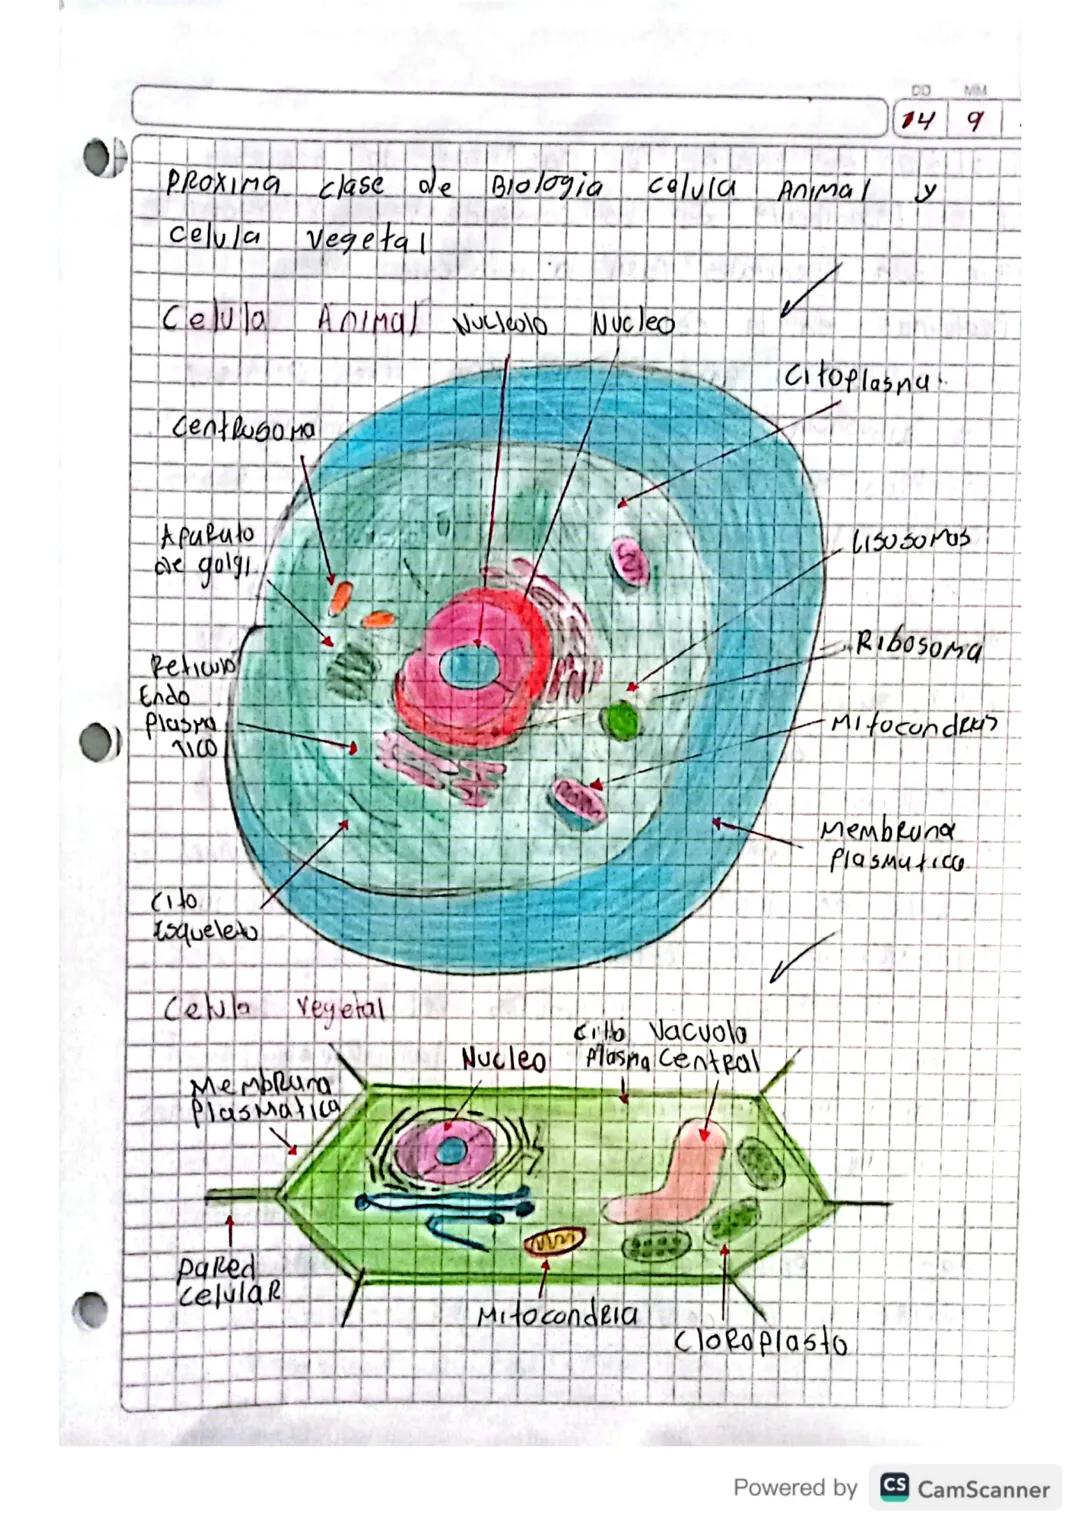 DD MM
14 9
PROXIMA clase de Biologia calula Animal y
celula vegetal
Celula Animal
Nucleolo
Nucleo
Citoplasma
Centrosoma
Aparato
de golgi
Lisosomas
Ribosoma
Reticulo
Endo
Plasma
tico
Mitocondrias
Membrana
Plasmatica
Cito
Esqueleto
Celula vegetal
Nucleo
Cito
Plasma
Vacuola
Central
Membrana
Plasmatica
pared
celular
Mitocondria
Cloroplasto
Powered by CS CamScanner